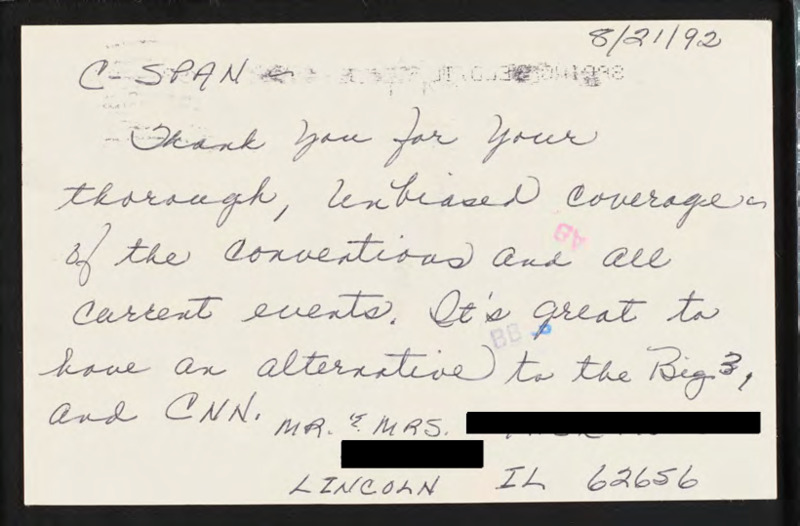 8/21/92
C-SPAN
Thank you for your
thorough, Unbiased coverage
of the conventions and all
current events. It's great to
have an alternative to the Big 3,
and CNN. MR. & MRS.
LINCOLN IL 62656
AB
BB